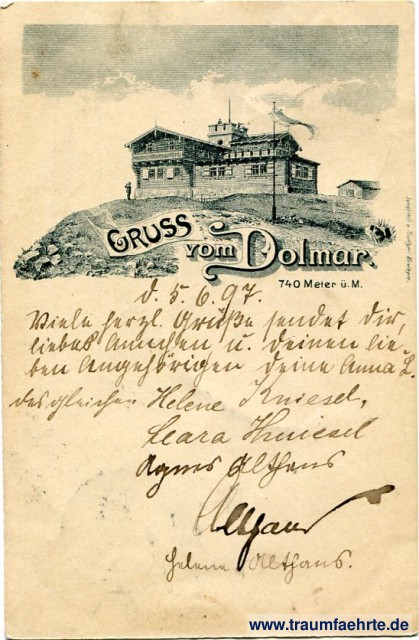 GRUSS
vom Dolmar.
740 Meter ü. M.
d. 5. 6. 97.
Viele herzl. Grüße sendet dir,
liebes Annchen u. deinen lie-
ben Angehörigen deine Anna L.
desgleichen Helene Kniesel,
Clara Kniesel
Agnes Althans
Althans
Helene Althans.
www.traumfaehrte.de